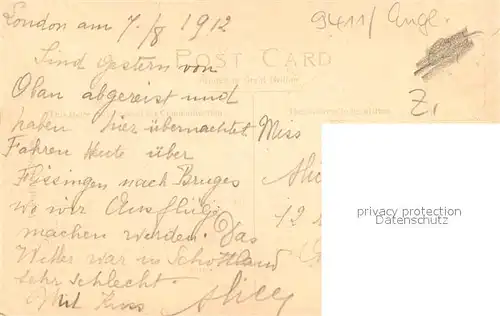 London am 7./8 1912
9411/Engl.
POST CARD
Sind gestern von
Oban abgereist und
haben hier übernachtet.
Fahren heute über
Flissingen nach Bruges
wo wir Ausflüge
machen werden. Das
Wetter war in Schottland
sehr schlecht.
Mit Kuss Alice
Z,
Miss
Alic
12
privacy protection
Datenschutz